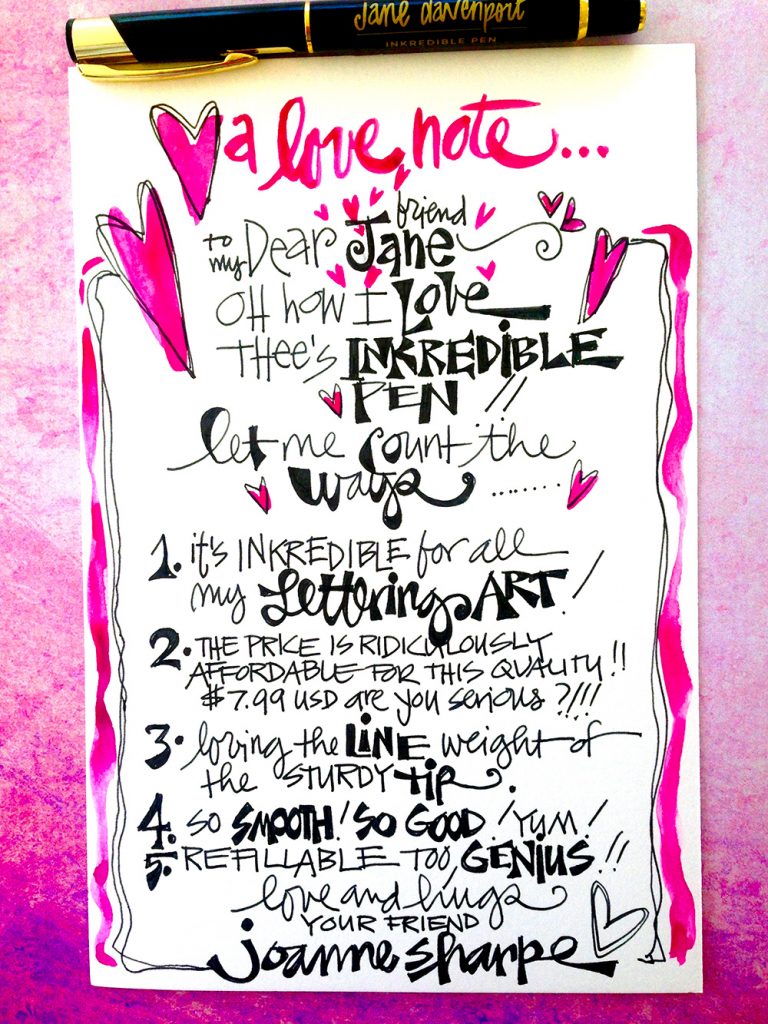 Jane davenport
INKREDIBLE PEN
a love note...
friend
to my Dear Jane
OH how I Love
THEE'S INKREDIBLE
PEN!!
let me count the
ways........
1. it's INKREDIBLE for all
my Lettering ART!
2. THE PRICE IS RIDICULOUSLY
AFFORDABLE FOR THIS QUALITY!!
$7.99 USD are you serious?!!!
3. loving the LINE weight of
the STURDY tip.
4. SO SMOOTH! SO GOOD! YUM!
5. REFILLABLE TOO GENIUS!!
love and hugs
YOUR FRIEND
joanne sharpe